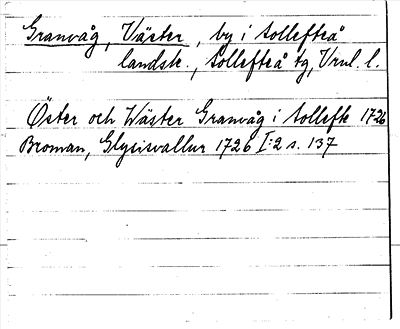 Granvåg, Väster, by i Sollefteå
landsk., Sollefteå tg, Vrnl. l.
Öster och Wäster Granvåg i Sollefte 1726
Broman, Glysisvallur 1726 I:2 s. 137